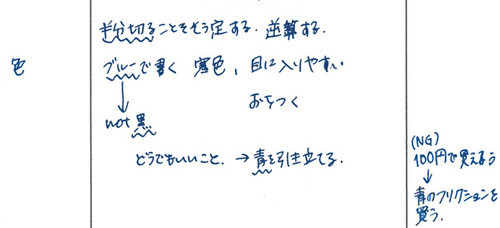 半分切ることをそう定する. 逆算する.
色
ブルーで書く 寒色, 目に入りやすい
おちつく
↓
not 黒
どうでもいいこと. → 青を引き立てる.
(NG)
100円で買えるう
↓
青のフリクションを
買う.